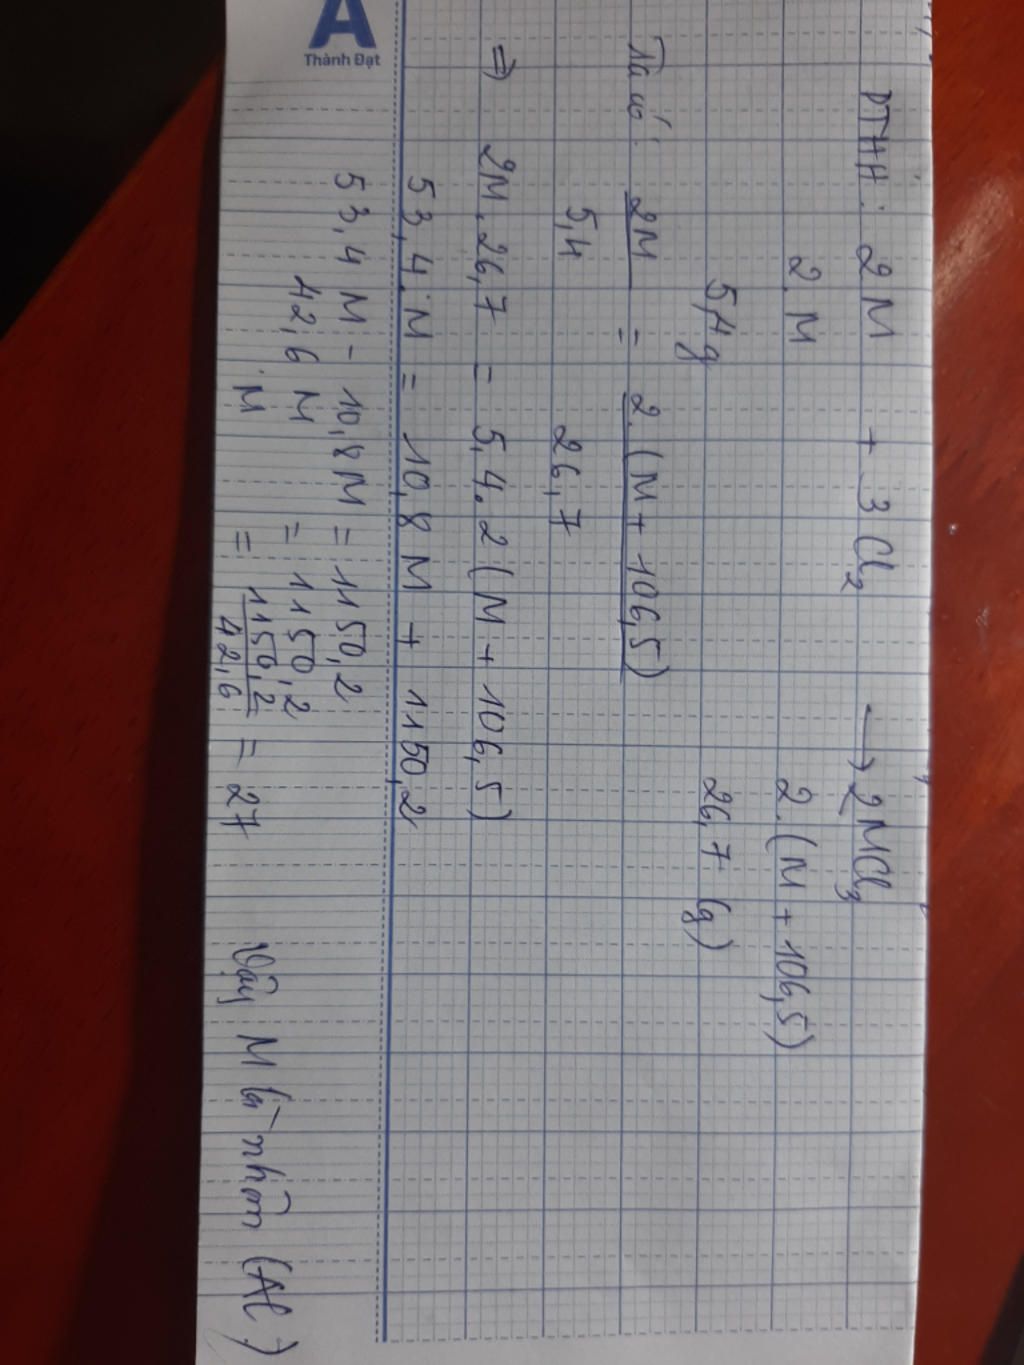 PTHH: 2M + 3Cl2 → 2MCl3
2.M 2.(M + 106,5)
5,4g 26,7 (g)
Ta có: 2M = 2.(M + 106,5)
5,4 26,7
⇒ 2M.26,7 = 5,4.2(M + 106,5)
53,4.M = 10,8M + 1150,2
53,4M - 10,8M = 1150,2
42,6 M = 1150,2
M = 1150,2 = 27 Vậy M là nhôm (Al)
42,6
A
Thành Đạt